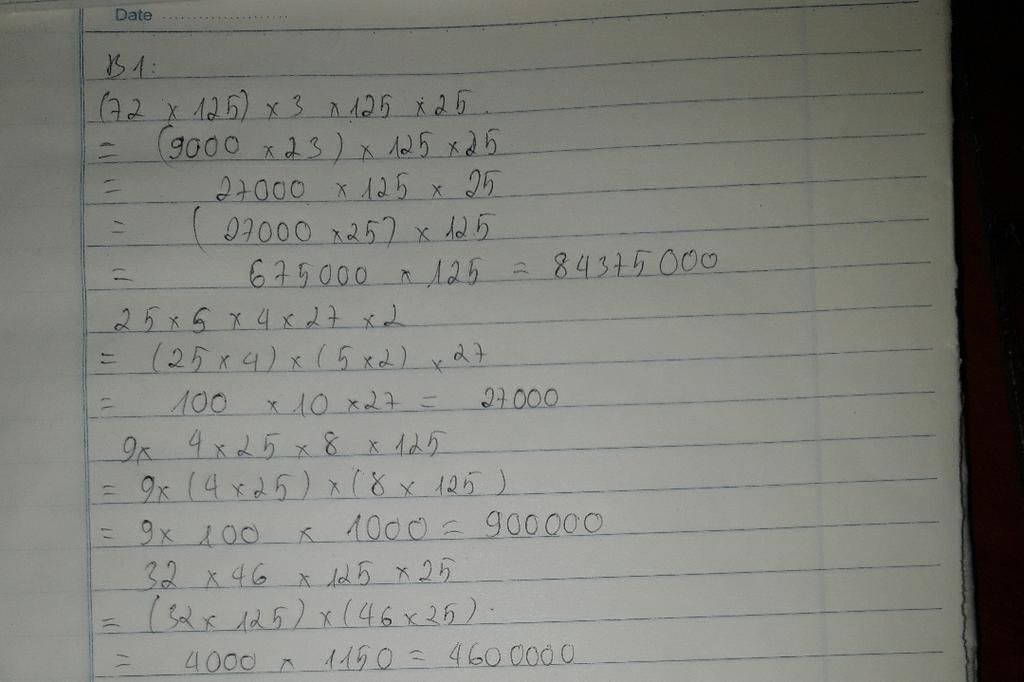 Date ....................
B1:
(72 × 125) × 3 × 125 × 25
= (9000 × 23) × 125 × 25
= 27000 × 125 × 25
= (27000 × 25) × 125
= 675000 × 125 = 84375000
25 × 5 × 4 × 27 × 2
= (25 × 4) × (5 × 2) × 27
= 100 × 10 × 27 = 27000
9 × 4 × 25 × 8 × 125
= 9 × (4 × 25) × (8 × 125)
= 9 × 100 × 1000 = 900000
32 × 46 × 125 × 25
= (32 × 125) × (46 × 25).
= 4000 × 1150 = 4600000